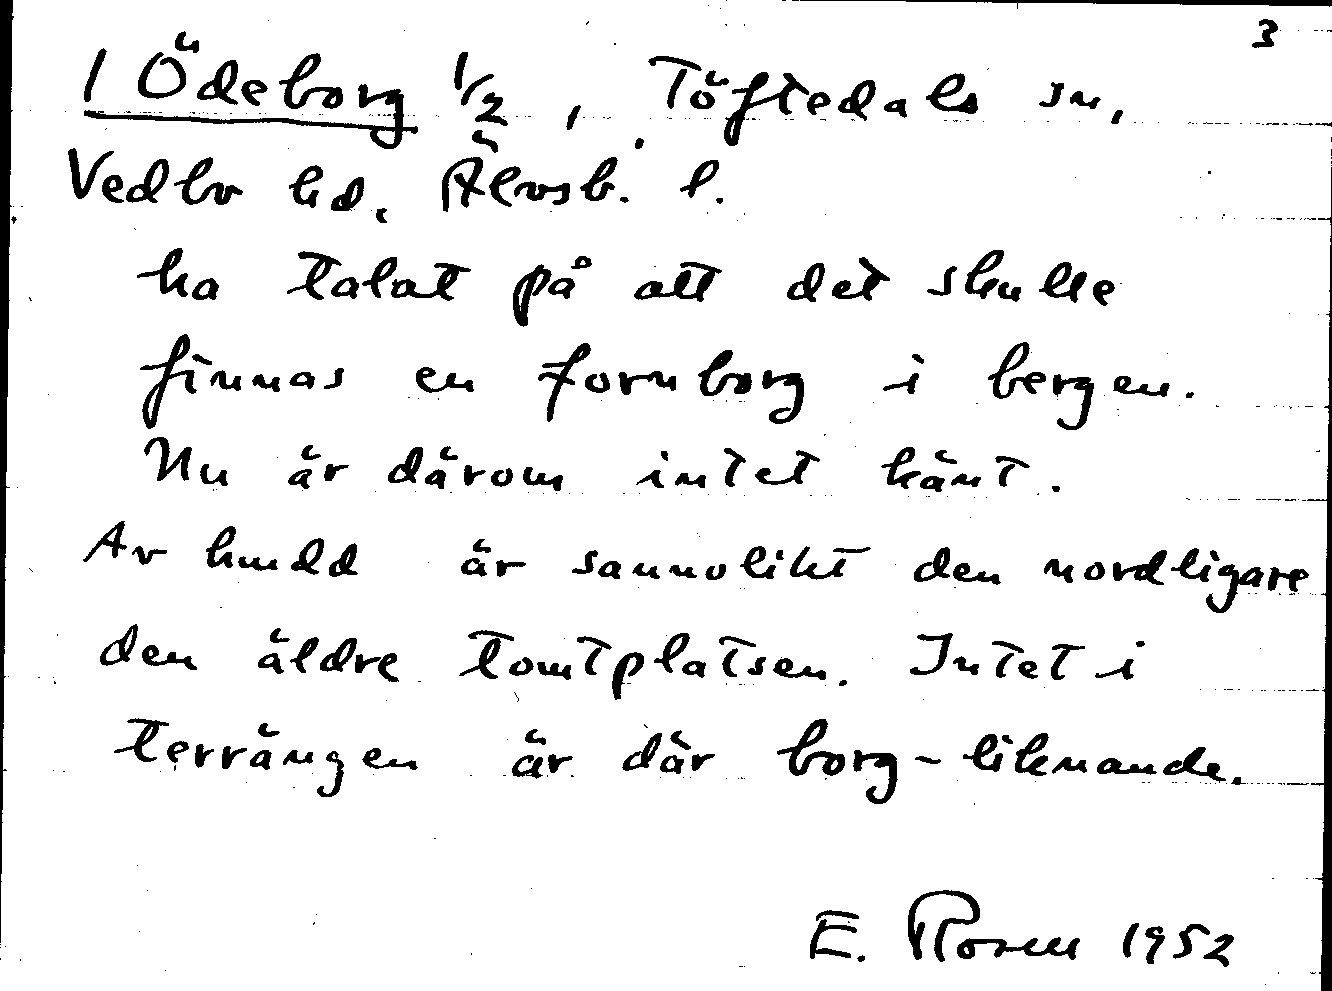 3
1 Ödeborg 1/2, Töftedals sn,
Vedbo hd. Älvsb. l.
ha talat på att det skulle
finnas en fornborg i bergen.
Nu är därom intet känt.
Av hmdd är sannolikt den nordligare
den äldre tomtplatsen. Intet i
terrängen är där borg-liknande.
E. Rosen 1952